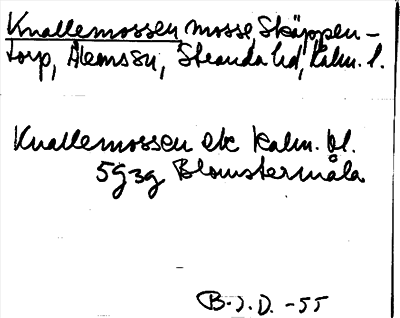 Knallemossen mosse, Skäppen-
torp, Ålems sn, Stranda hd, Kalm. l.
Knallemossen ek kalm. bl.
5g3g Blomstermåla
B.J.D. -55